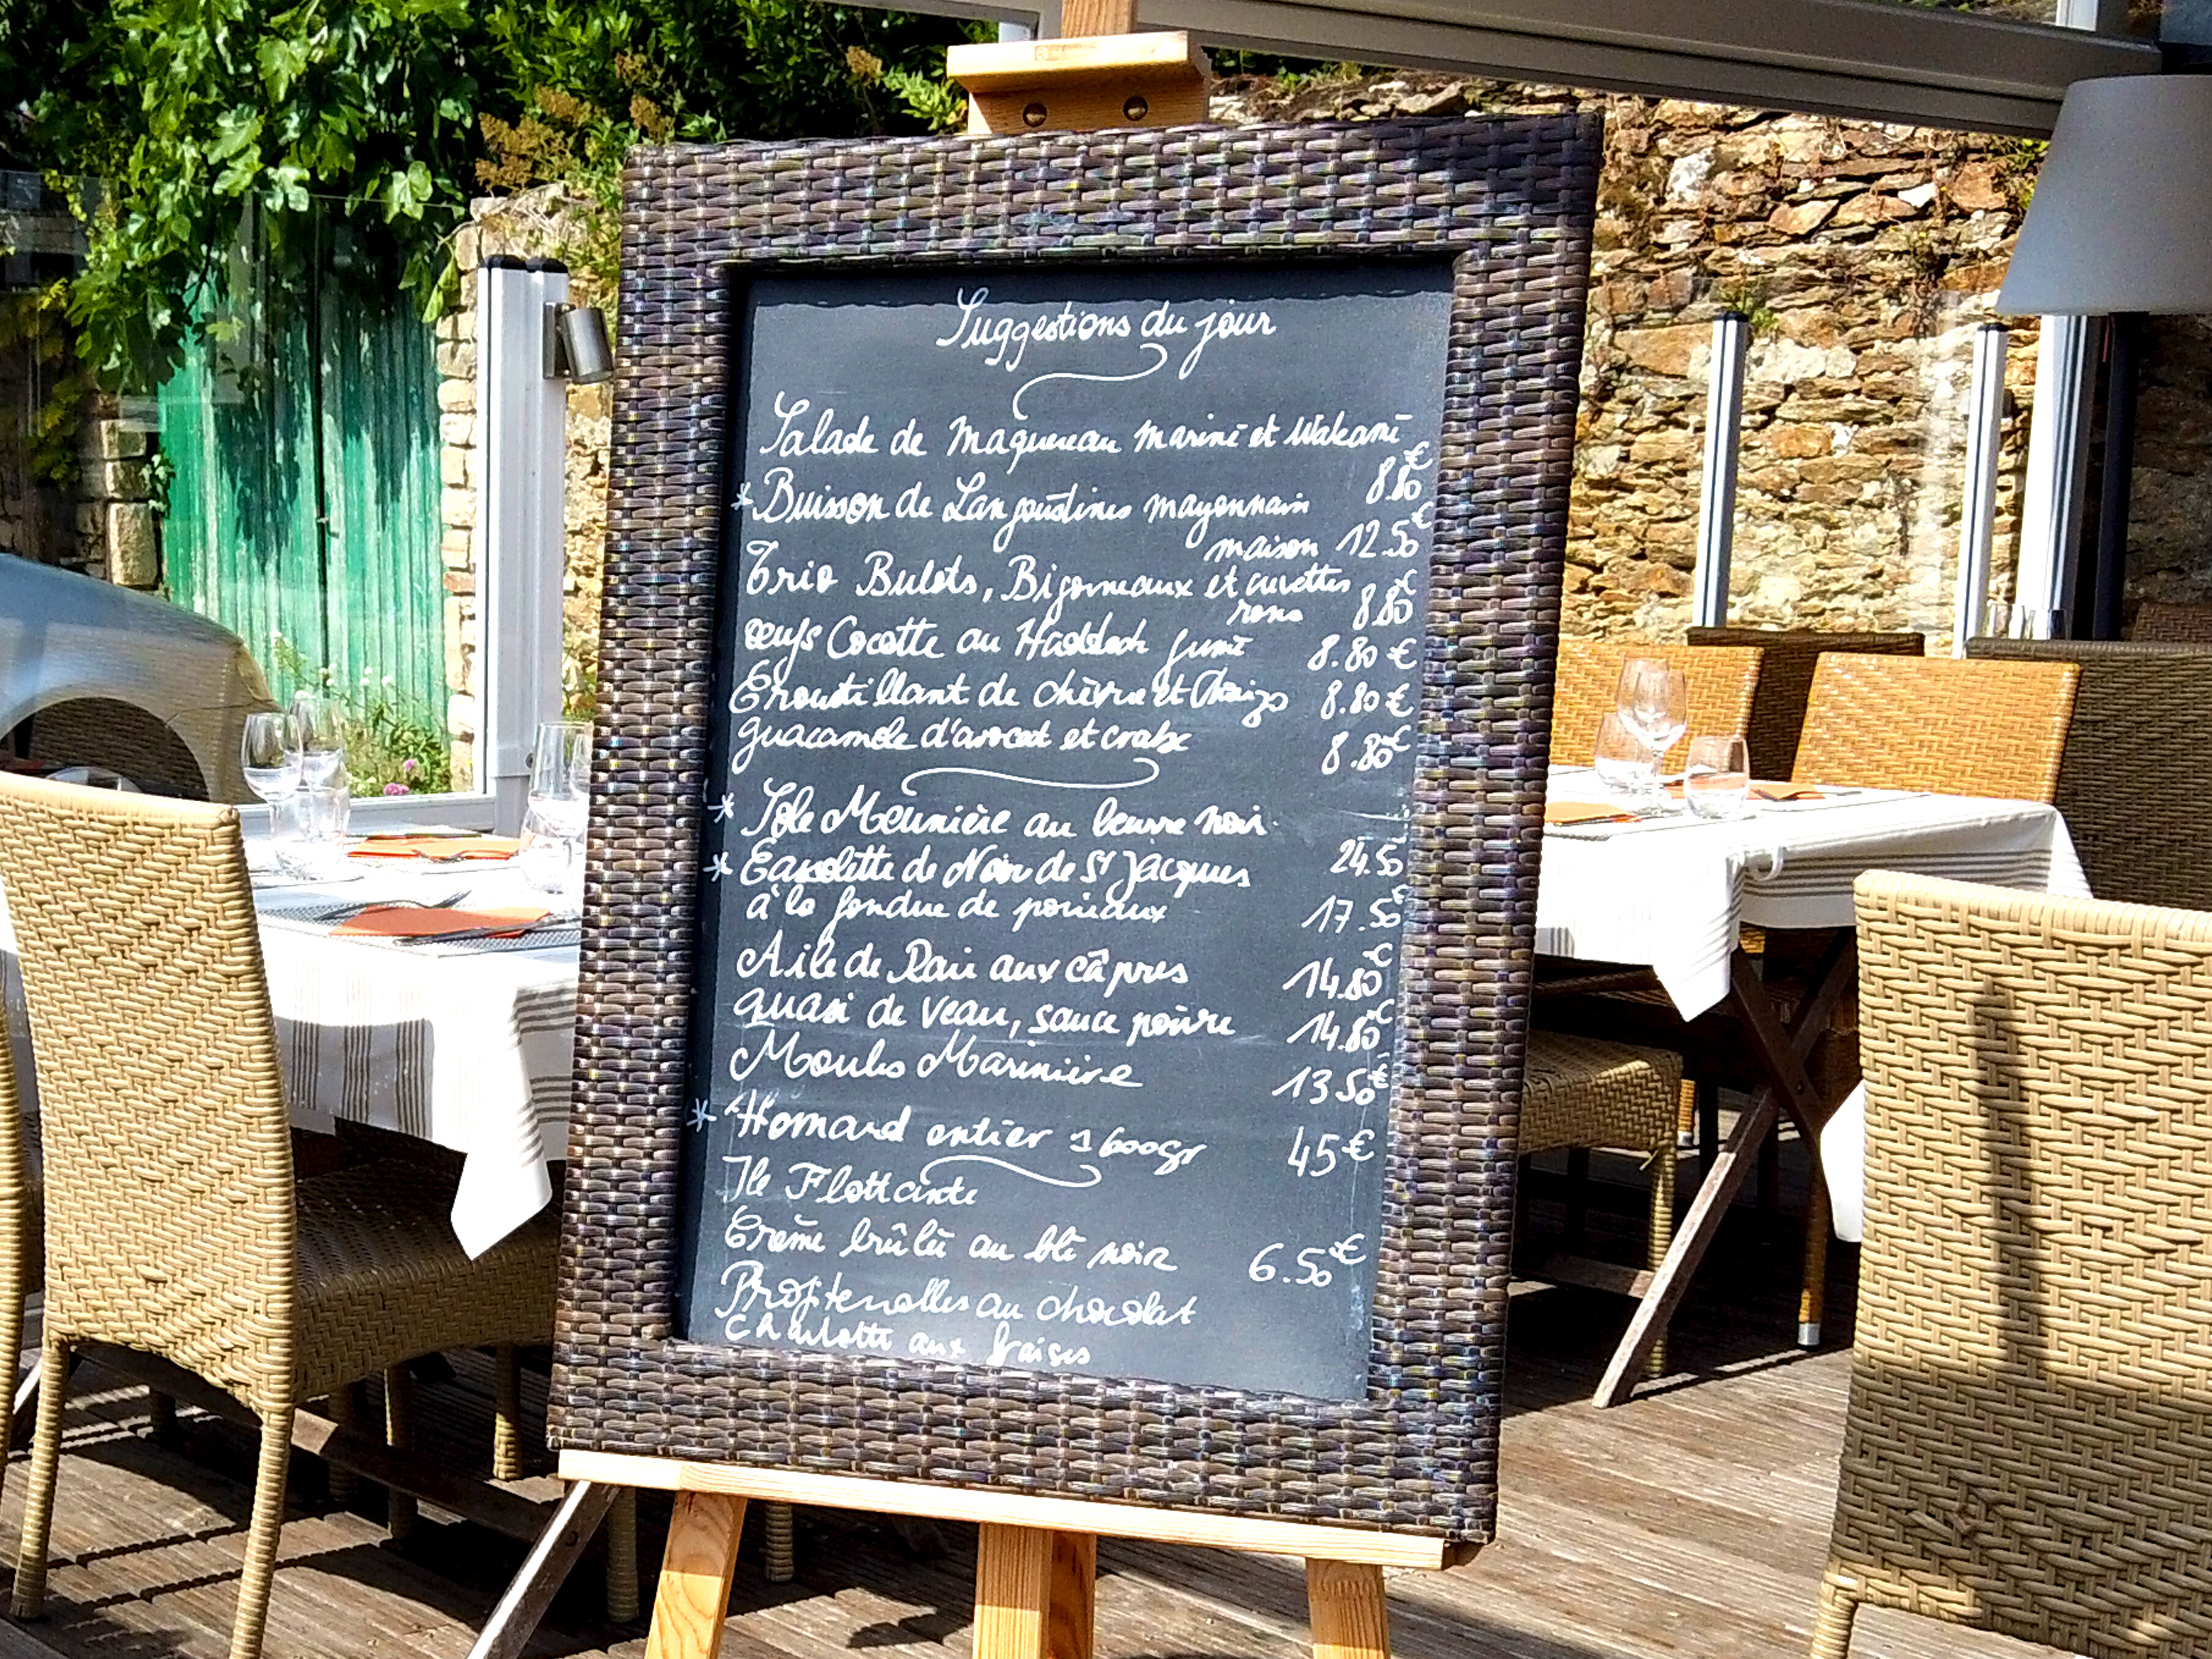 Suggestions du jour
Salade de Maquereau mariné et Wakamé
8.80€
*Buisson de Langoustines mayonnaise
maison 12.50€
Trio Bulots, Bigorneaux et crevettes
roses 8.80€
œufs Cocotte au Haddock fumé 8.80€
Croustillant de chèvre et Chorizo 8.80€
guacamole d'avocat et crabe 8.80€
* Sole Meunière au beurre noir.
24.50
* Cassolette de Noix de St Jacques
à la fondue de poireaux 17.50€
Aile de Raie aux câpres 14.80€
quasi de veau, sauce poivre 14.80€
Moules Marinière 13.50€
* Homard entier 600gr 45€
Ile Flottante
Crème brûlée au blé noir 6.50€
Profiterolles au chocolat
Charlotte aux fraises